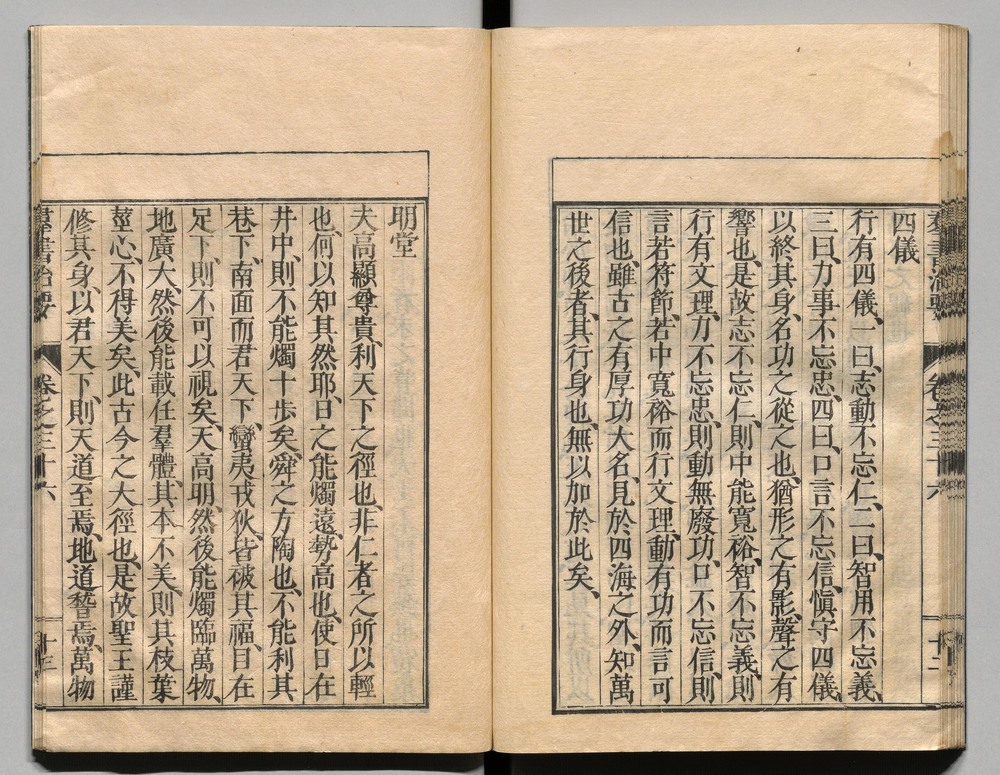 羣書治要 卷之三十六 十二
四儀
行有四儀、一曰、志動不忘仁、二曰、智用不忘義、
三曰、力事不忘忠、四曰、口言不忘信、愼守四儀、
以終其身、名功之從之也、猶形之有影、聲之有
響也、是故志不忘仁、則中能寬裕、智不忘義、則
行有文理、力不忘忠、則動無廢功、口不忘信、則
言若符節、若中寬裕而行文理、動有功而言可
信也、雖古之有厚功大名、見於四海之外、知萬
世之後者、其行身也、無以加於此矣、
明堂
夫高顯尊貴、利天下之徑也、非仁者之所以輕
也、何以知其然耶、日之能燭遠、勢高也、使日在
井中、則不能燭十步矣、舜之方陶也、不能利其
巷下、南面而君天下、蠻夷戎狄、皆被其福、目在
足下、則不可以視矣、天高明、然後能燭臨萬物、
地廣大、然後能載任羣體、其本不美、則其枝葉
莖心、不得美矣、此古今之大徑也、是故聖王謹
修其身、以君天下、則天道至焉、地道稽焉、萬物
羣書治要 卷之三十六 十三